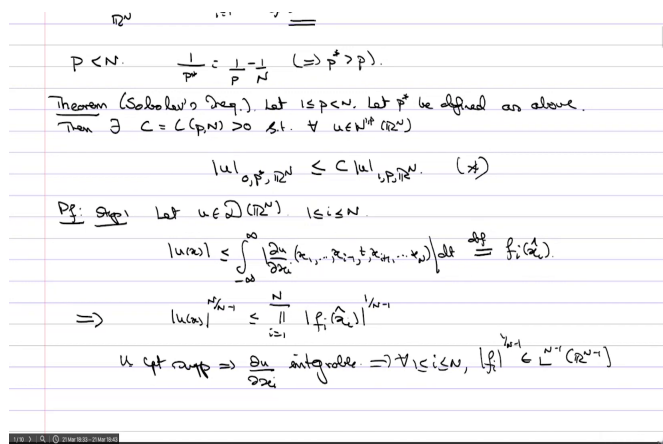 ℝᴺ i=1
p < N. 1/p* = 1/p - 1/N (⇒ p* > p).
Theorem (Sobolev's Ineq.). Let 1 ≤ p < N. Let p* be defined as above.
Then ∃ C = C(p,N) > 0 s.t. ∀ u ∈ W^{1,p}(ℝᴺ)
|u|_{0,p*,ℝᴺ} ≤ C |u|_{1,p,ℝᴺ}. (*)
Pf: Step 1 Let u ∈ D(ℝᴺ) 1 ≤ i ≤ N.
|u(x)| ≤ ∫_{-∞}^{∞} |∂u/∂x_i (x_1, ..., x_{i-1}, t, x_{i+1}, ... x_N)| dt =^{def} f_i(x̂_i).
⇒ |u(x)|^{N/N-1} ≤ ∏_{i=1}^{N} |f_i(x̂_i)|^{1/N-1}
u cpt supp ⇒ ∂u/∂x_i integrable ⇒ ∀ 1 ≤ i ≤ N, |f_i|^{1/N-1} ∈ L^{N-1}(ℝ^{N-1})
1/10 21 Mar 18:03 - 21 Mar 18:43